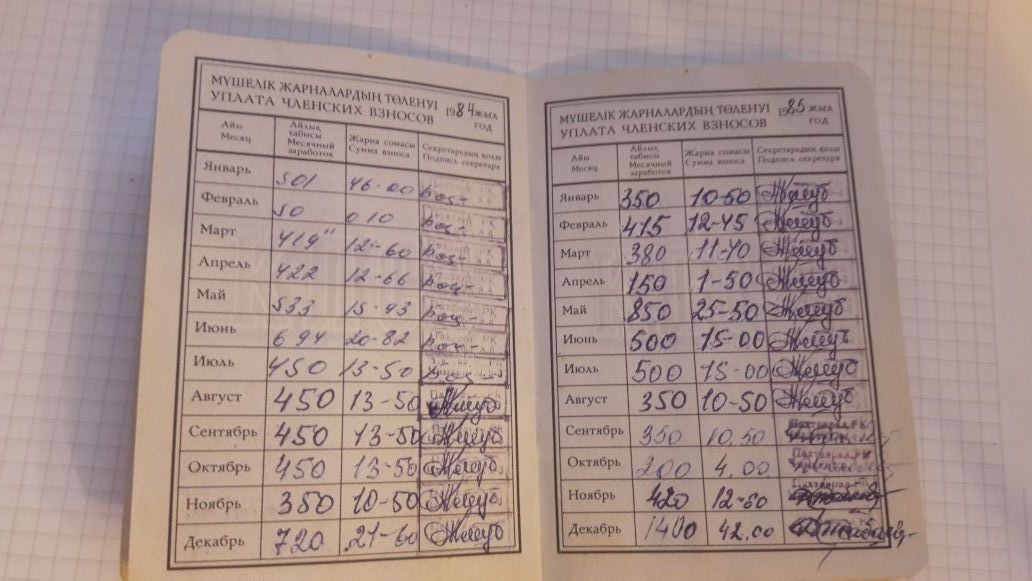 МҮШЕЛІК ЖАРНАЛАРДЫҢ ТӨЛЕНУІ
УПЛАТА ЧЛЕНСКИХ ВЗНОСОВ
1984 жыл
год
Айы
Месяц
Айлық
табысы
Месячный
заработок
Жарна сомасы
Сумма взноса
Секретардың қолы
Подпись секретаря
Январь 501 46-00
Февраль 50 0 10
Март 419 12-60
Апрель 422 12-66
Май 533 15-93
Июнь 694 20-82
Июль 450 13-50
Август 450 13-50
Сентябрь 450 13-50
Октябрь 450 13-50
Ноябрь 350 10-50
Декабрь 720 21-60
МҮШЕЛІК ЖАРНАЛАРДЫҢ ТӨЛЕНУІ
УПЛАТА ЧЛЕНСКИХ ВЗНОСОВ
1985 жыл
год
Айы
Месяц
Айлық
табысы
Месячный
заработок
Жарна сомасы
Сумма взноса
Секретардың қолы
Подпись секретаря
Январь 350 10-50
Февраль 415 12-45
Март 380 11-40
Апрель 150 1-50
Май 850 25-50
Июнь 500 15-00
Июль 500 15-00
Август 350 10-50
Сентябрь 350 10.50
Октябрь 200 4.00
Ноябрь 420 12-60
Декабрь 1400 42.00